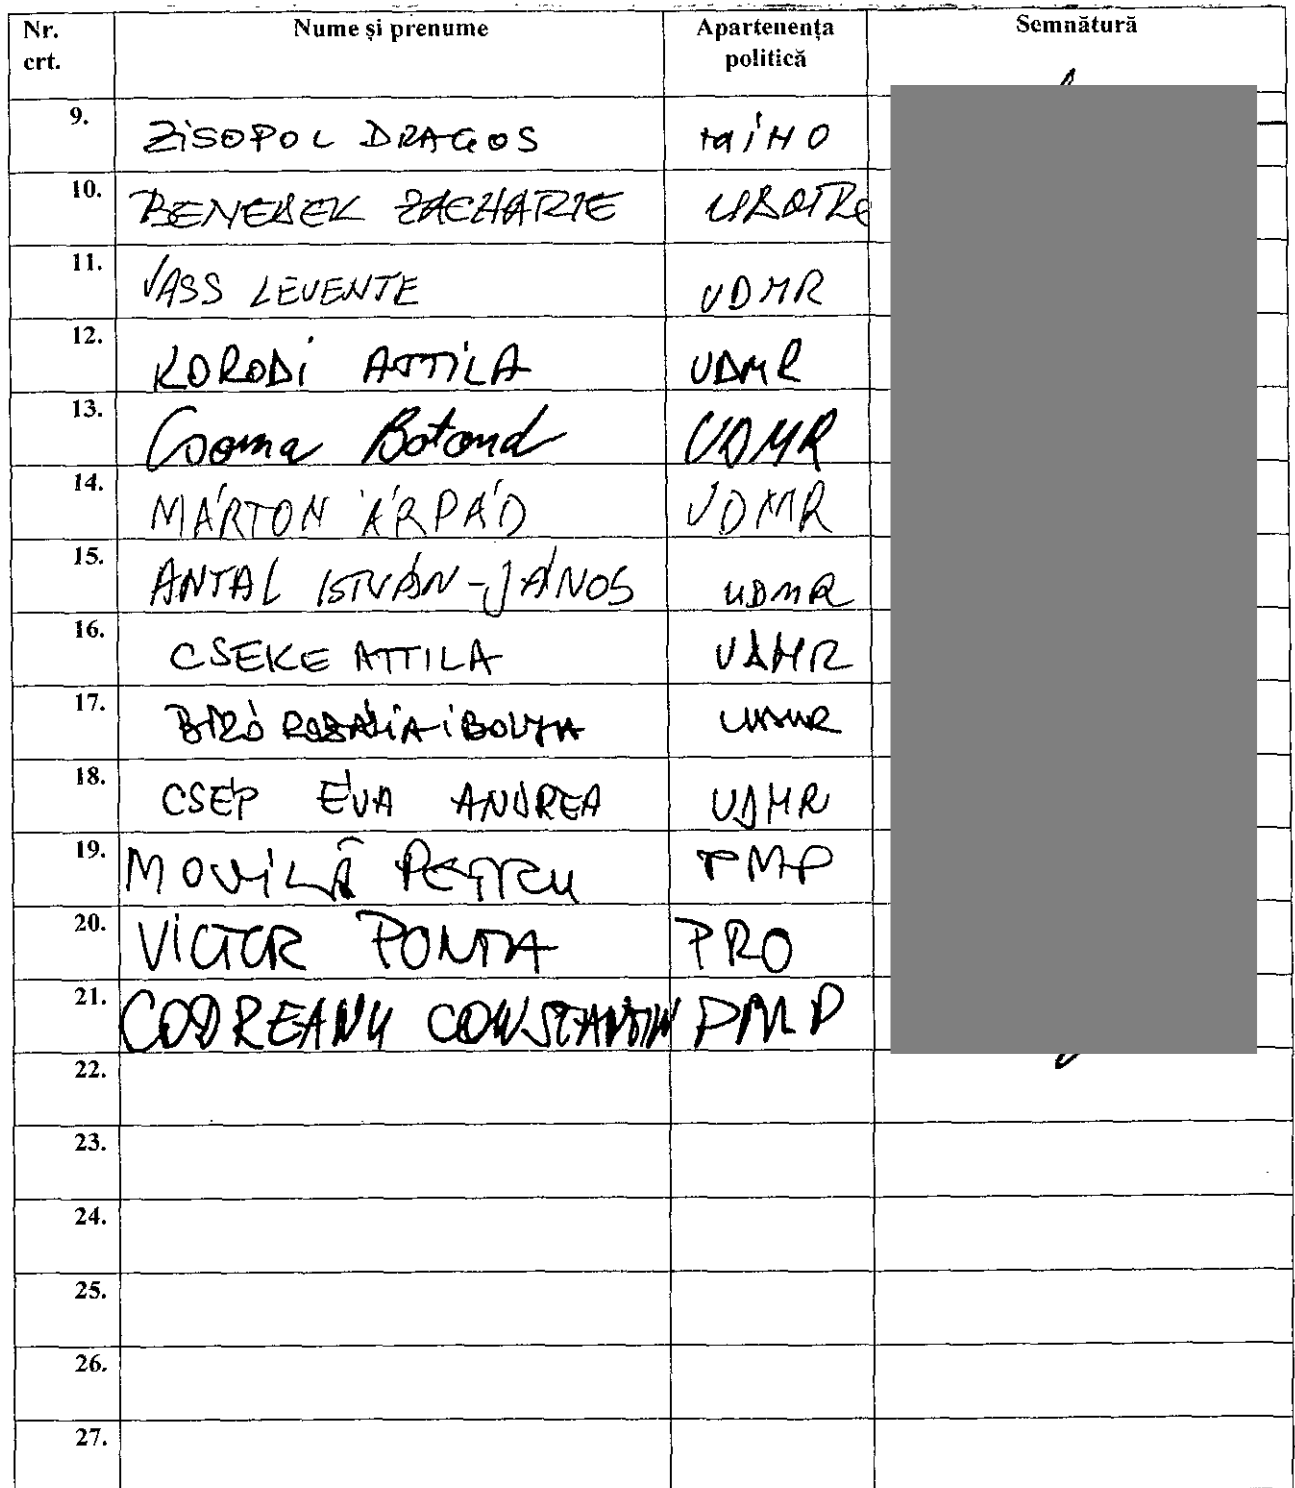 Nr. crt. Nume și prenume Apartenența politică Semnătură
9. ZISOPOL DRAGOS MINO
10. BENEDEK ZACHARIE UDMR
11. VASS LEVENTE UDMR
12. KORODI ATTILA UDMR
13. Csoma Botond UDMR
14. MÁRTON ÁRPÁD UDMR
15. ANTAL ISTVÁN-JÁNOS UDMR
16. CSEKE ATTILA UDMR
17. BIRÓ ROZÁLIA IBOLYA UDMR
18. CSÉP ÉVA ANDREA UDMR
19. MOVILĂ PETRU PMP
20. VICTOR PONTA PRO
21. CODREANU CONSTANTIN PMP
22.
23.
24.
25.
26.
27.